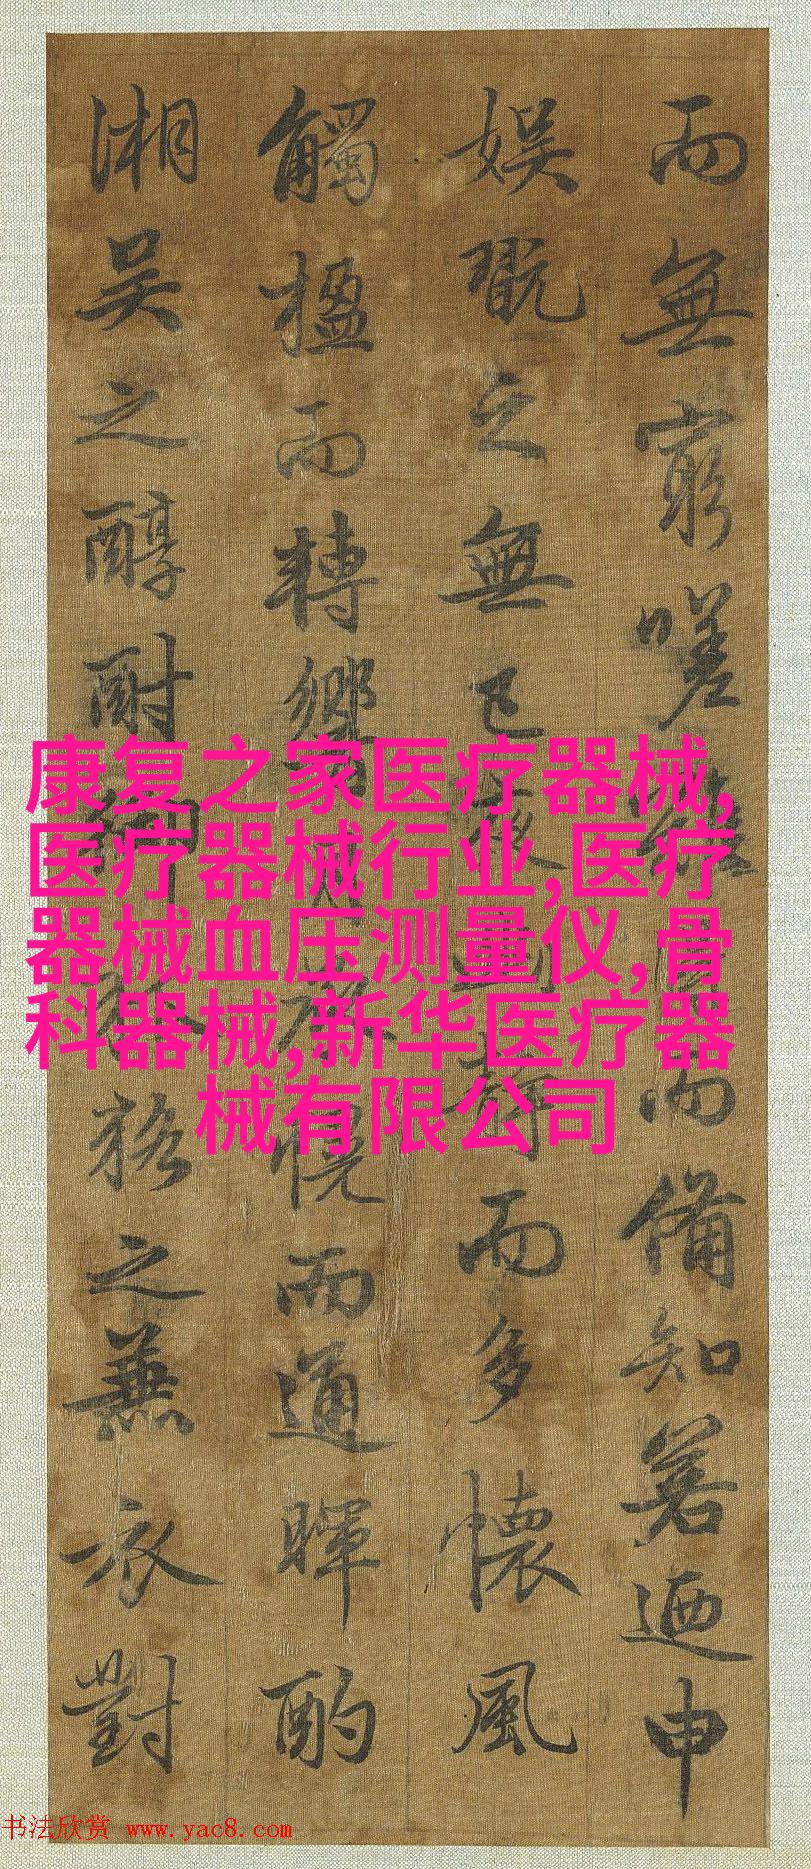 而無窮嗟
而備知著迺申
娱翫之無已
而多懷風
觸楹而轉響
恍而通暉酌
湘吴之醇酎
之無衣對
康复之家医疗器械,
医疗器械行业,医疗
器械血压测量仪,骨
科器械,新华医疗器
械有限公司
书法欣赏 www.yac8.com